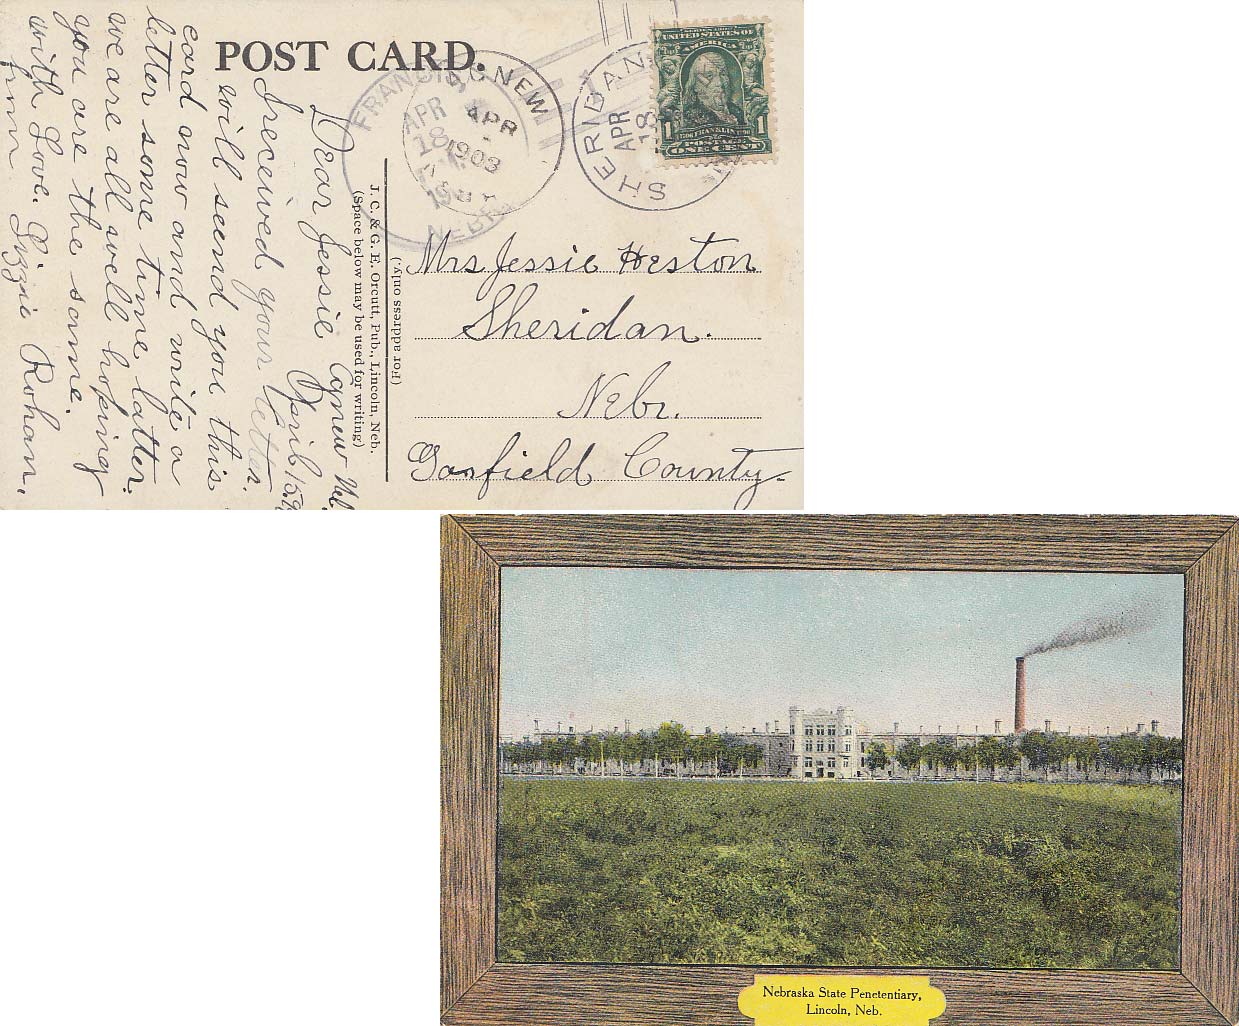 POST CARD.
FRANCIS,
APR
18
NEBR
AGNEW
APR
1903
SHERIDAN
APR
18
UNITED STATES OF
AMERICA
1706 FRANKLIN 1790
POSTAGE
1 ONE CENT 1
J. C. & G. E. Orcutt, Pub., Lincoln, Neb.
(Space below may be used for writing)
(For address only.)
Mrs Jessie Heston
Sheridan.
Nebr.
Garfield County
Agnew Neb.
April 15.
Dear Jessie
I received your letter.
will seend you this
card now and write a
letter some time latter.
we are all well hopeing
you are the same.
with Love. Lizzie Roham.
from
Nebraska State Penetentiary,
Lincoln, Neb.